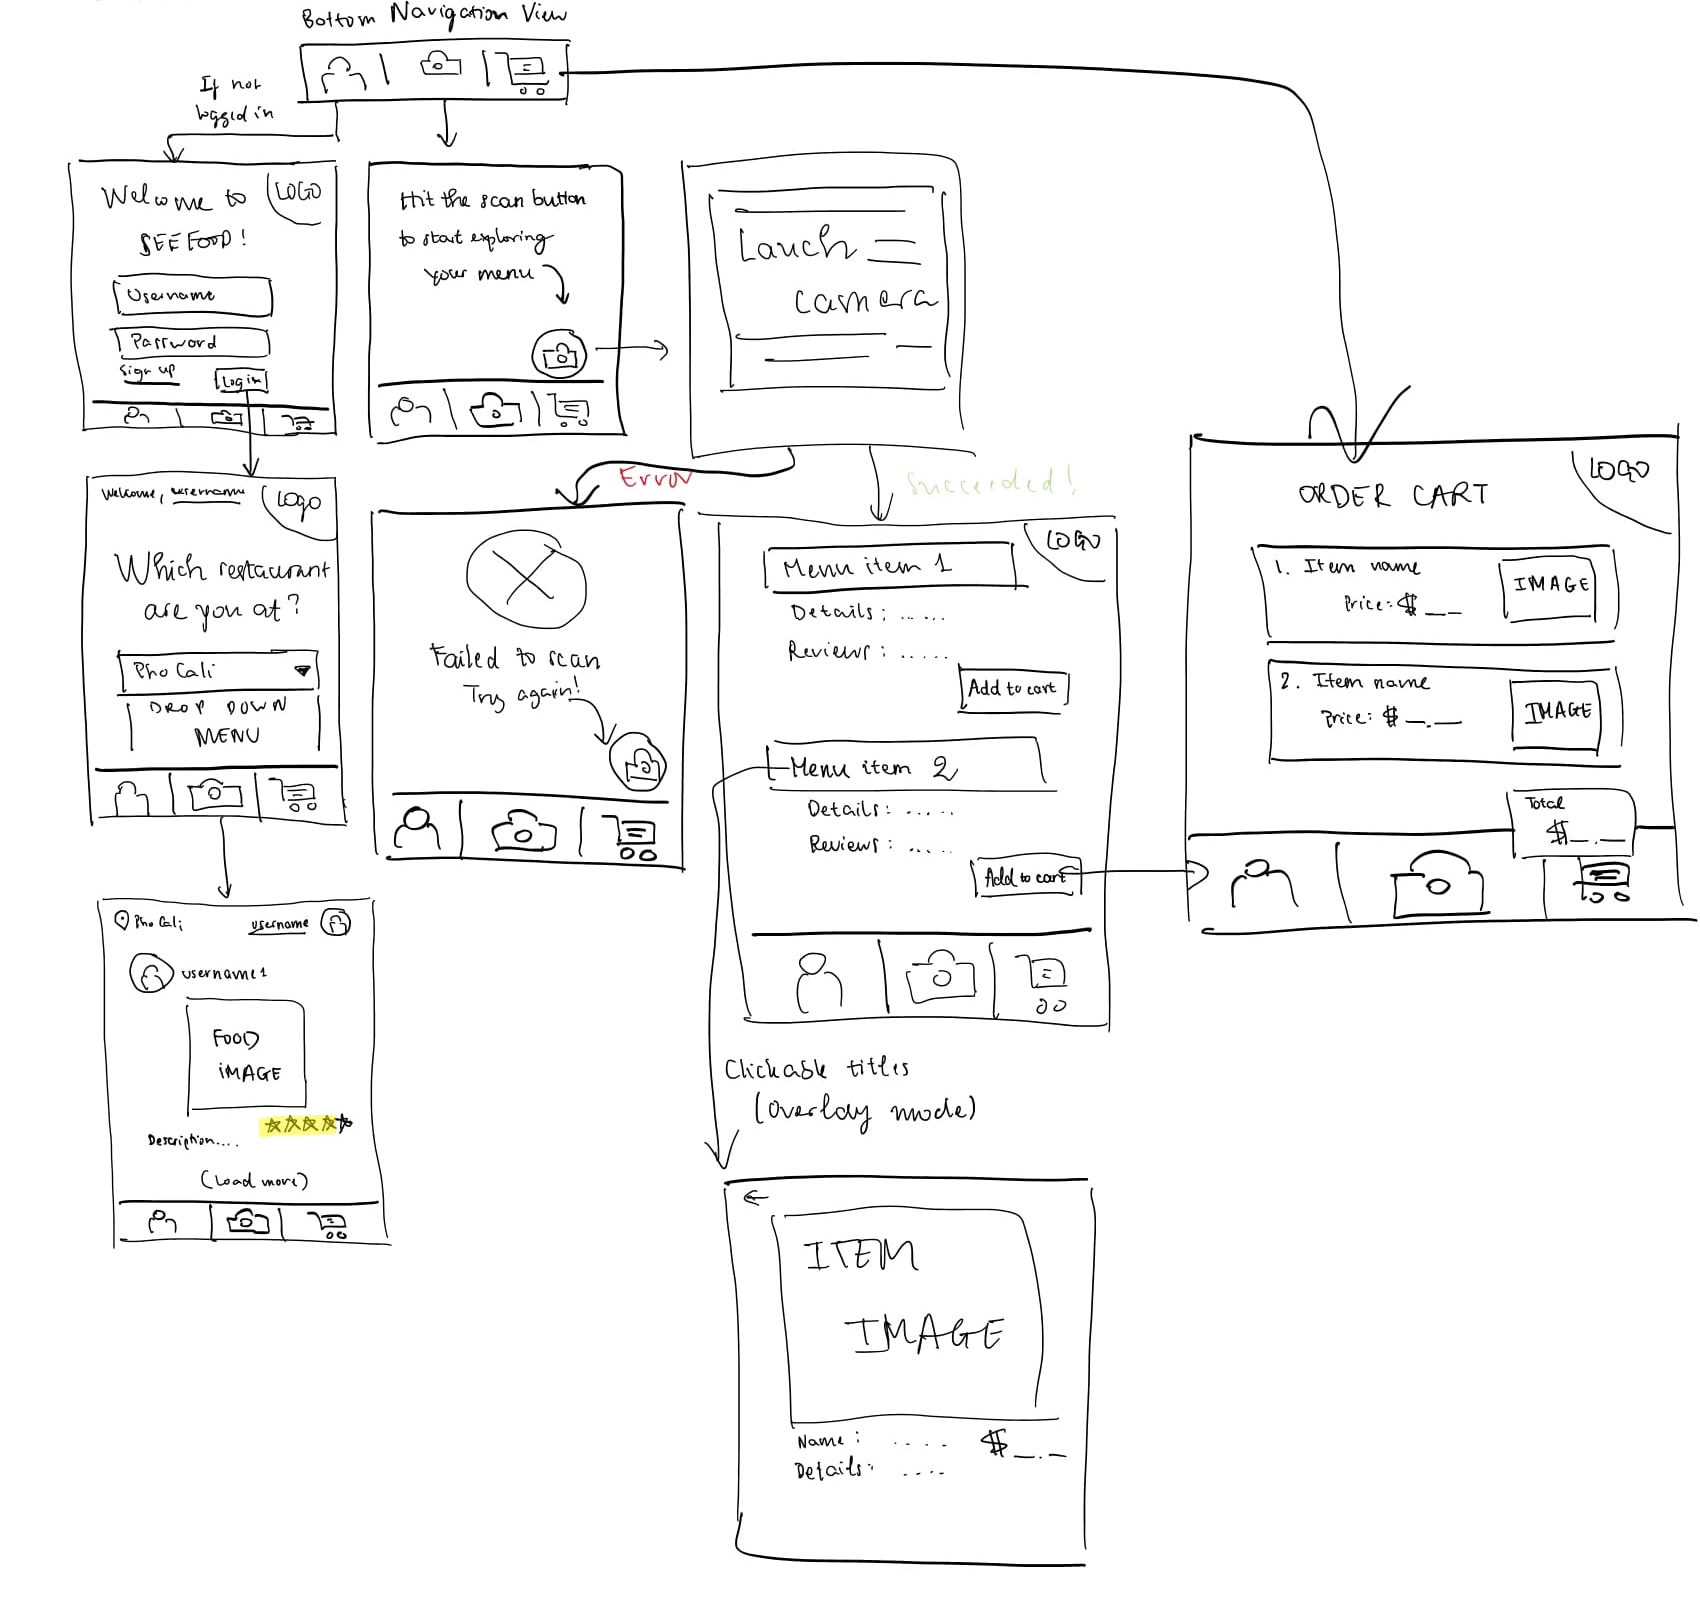 Bottom Navigation View
If not
logged in
Welcome to
SEEFOOD!
LOGO
Username
Password
Sign up
Login
Hit the scan button
to start exploring
your menu
Lauch
camera
Error
Succeeded!
Welcome, username
Logo
Which restaurant
are you at?
Pho Cali
DROP DOWN
MENU
Failed to scan
Try again!
LOGO
Menu item 1
Details: .....
Reviews: .....
Add to cart
Menu item 2
Details: .....
Reviews: .....
Add to cart
ORDER CART
LOGO
1. Item name
Price: $ _ _
IMAGE
2. Item name
Price: $ _._
IMAGE
Total
$_._
Pho Cali
username
username1
FOOD
IMAGE
Description....
(Load more)
Clickable titles
(Overlay mode)
ITEM
IMAGE
Name: ....
$_._
Details: ....